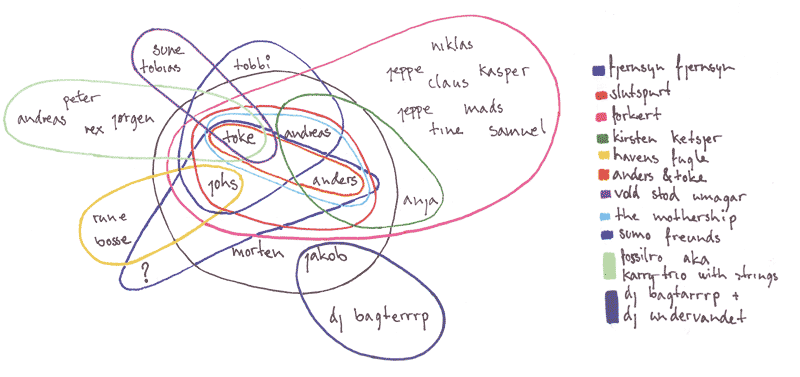 sune
tobias
tobbi
niklas
jeppe
claus kasper
jeppe mads
tine samuel
peter
andreas
rex jørgen
toke
andreas
johs
anders
anja
rune
bosse
?
morten
jakob
dj bagterrrp
fjernsyn fjernsyn
slutspurt
forkert
kirsten ketsjer
havens fugle
anders & toke
vold stod umagar
the mothership
sumo freunds
fossilro aka
karrytrio with strings
dj bagtarrrp +
dj undervandet